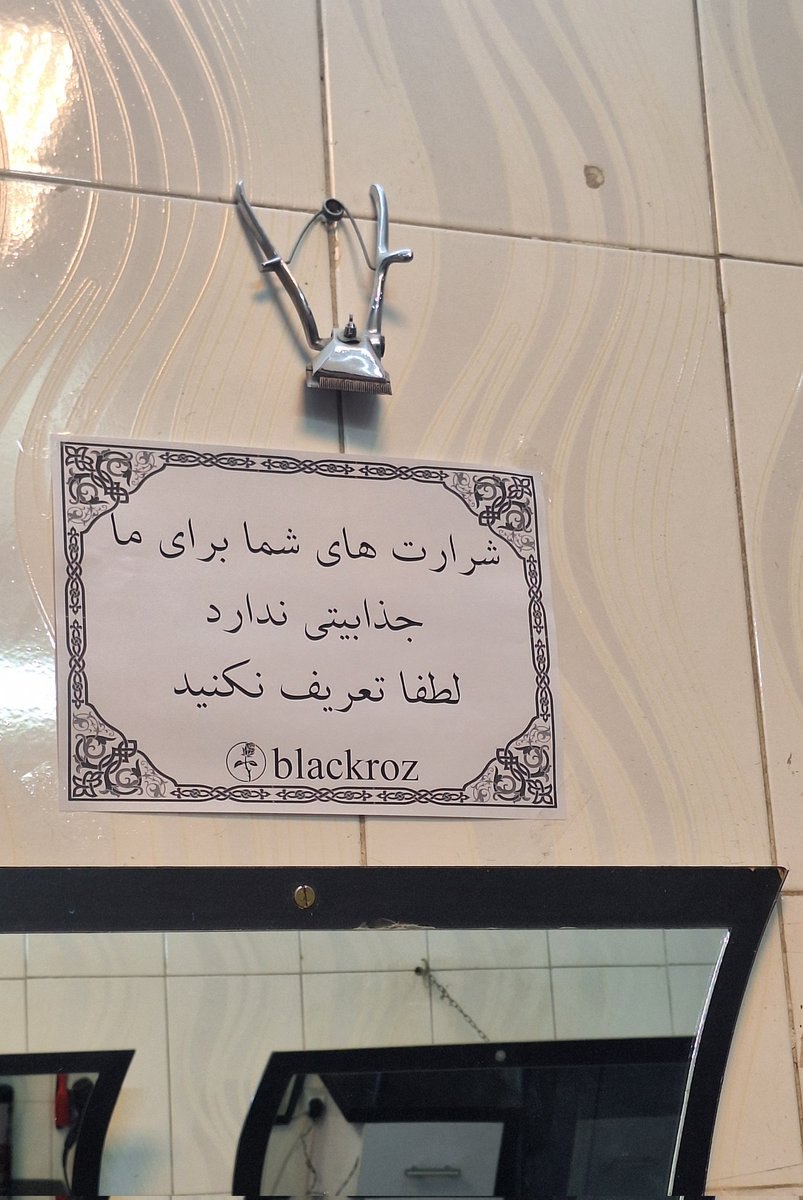 شرارت های شما برای ما
جذابیتی ندارد
لطفا تعریف نکنید
blackroz